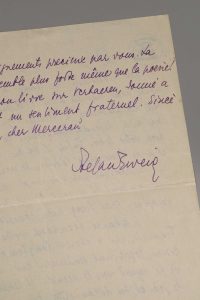 gnements precieux par vous. La
semble plus forte même que la poesie!
livre sur Verhaeren, donné a
un sentiment fraternel. Sincè
, cher Mercereau
Stefan Zweig